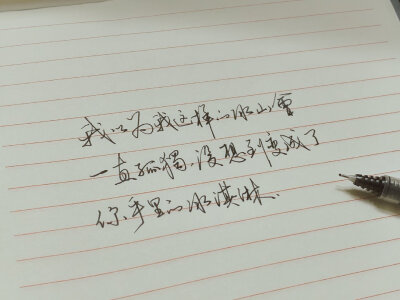 我以为我这样的冰山雪
一直孤独,没想到变成了
你手里的冰淇淋.